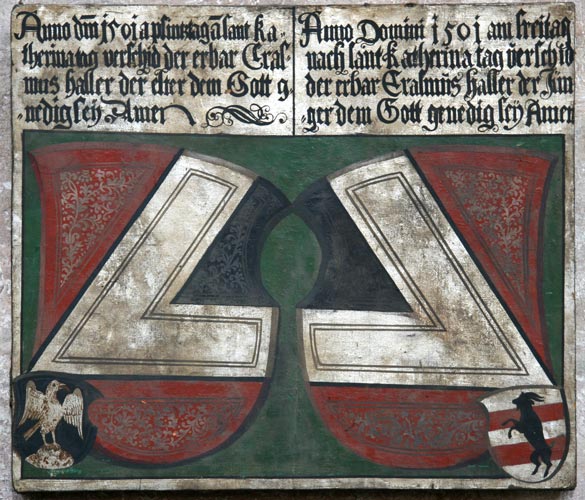 Anno dm̄ 1501 a pfinztag an sant Ka-
therina tag verschid der erbar Eras-
mus haller der elter dem Gott g-
-nedig sey Amen
Anno Domini 1501 am freitag
nach sant Katherina tag verschid
der erbar Erasmus haller der Jun-
ger dem Gott genedig sey Amen